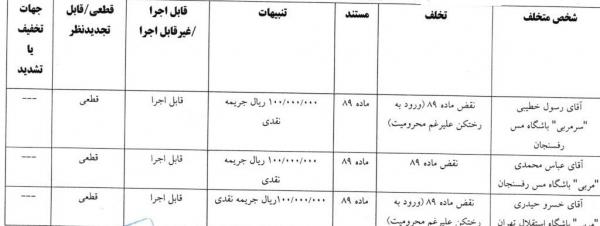 شخص متخلف
تخلف
مستند
تنبیهات
قابل اجرا
/غیرقابل اجرا
قطعی/قابل
تجدیدنظر
جهات
تخفیف
یا
تشدید
آقای رسول خطیبی
"سرمربی" باشگاه مس
رفسنجان
نقض ماده ۸۹ (ورود به
رختکن علیرغم محرومیت)
ماده ۸۹
۱۰۰/۰۰۰/۰۰۰ ریال جریمه
نقدی
قابل اجرا
قطعی
---
آقای عباس محمدی
"مربی" باشگاه مس رفسنجان
نقض ماده ۸۹
ماده ۸۹
۱۰۰/۰۰۰/۰۰۰ ریال جریمه
نقدی
قابل اجرا
قطعی
---
آقای خسرو حیدری
"مربی" باشگاه استقلال تهران
نقض ماده ۸۹ (ورود به
رختکن علیرغم محرومیت)
ماده ۸۹
۱۰۰/۰۰۰/۰۰۰ریال جریمه نقدی
قابل اجرا
قطعی
---